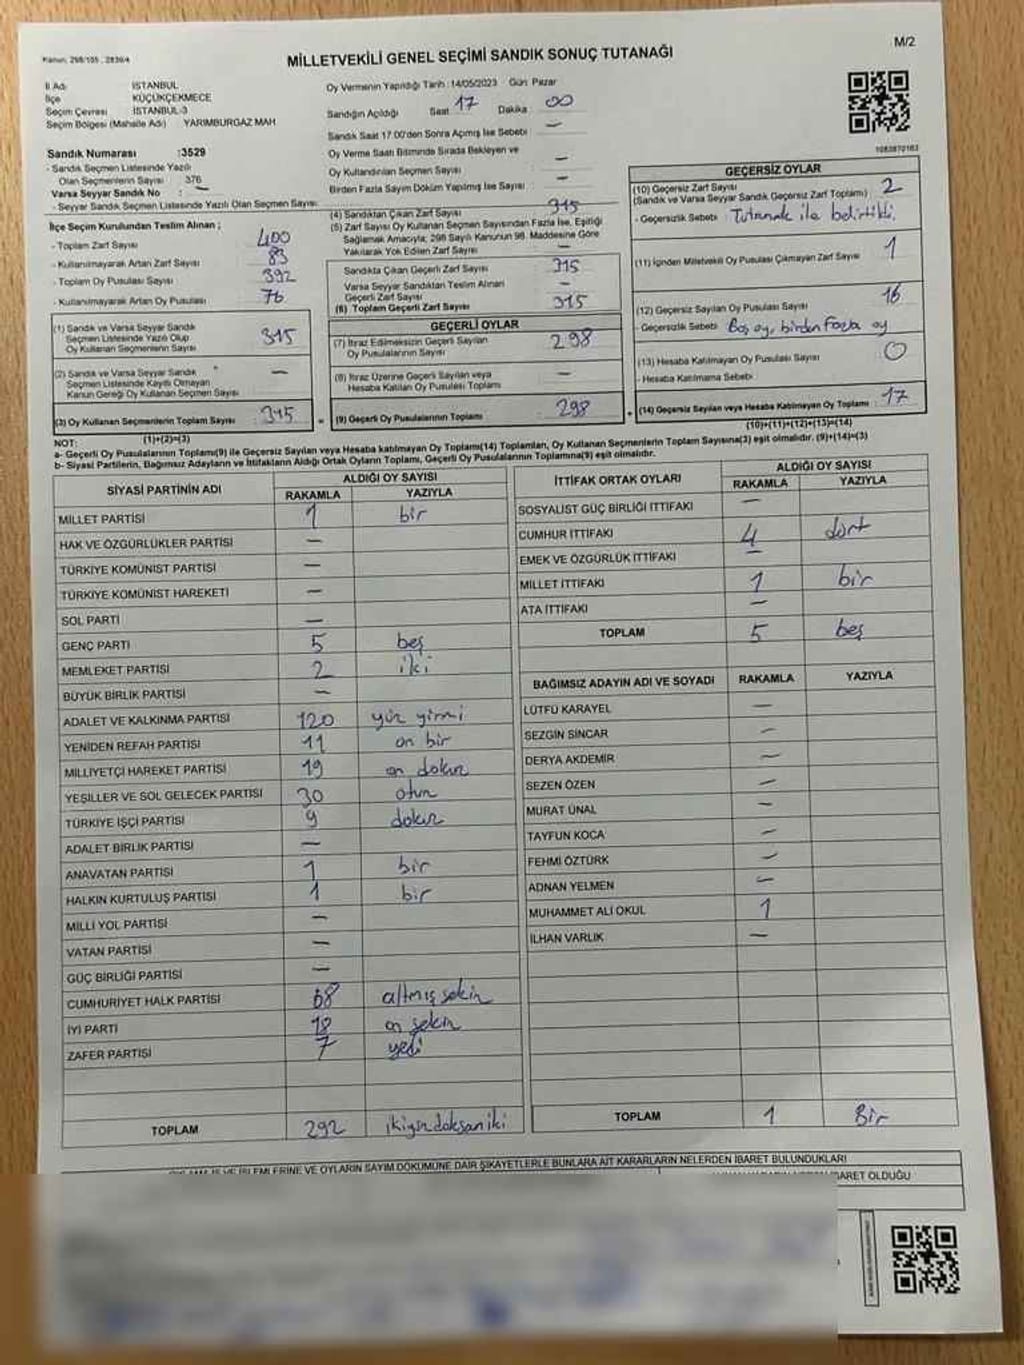 Kanun: 298/105 , 2839/4
MİLLETVEKİLİ GENEL SEÇİMİ SANDIK SONUÇ TUTANAĞI
M/2
İl Adı İSTANBUL
İlçe KÜÇÜKÇEKMECE
Seçim Çevresi İSTANBUL-3
Seçim Bölgesi (Mahalle Adı) YARIMBURGAZ MAH.
Sandık Numarası :3529
- Sandık Seçmen Listesinde Yazılı
Olan Seçmenlerin Sayısı 376
Varsa Seyyar Sandık No : —
- Seyyar Sandık Seçmen Listesinde Yazılı Olan Seçmen Sayısı
Oy Vermenin Yapıldığı Tarih :14/05/2023 Gün: Pazar
Sandığın Açıldığı Saat 17 Dakika 00
Sandık Saat 17.00'den Sonra Açımış İse Sebebi —
Oy Verme Saati Bitiminde Sırada Bekleyen ve
Oy Kullandırılan Seçmen Sayısı —
Birden Fazla Sayım Döküm Yapılmış İse Sayısı —
1083870163
İlçe Seçim Kurulundan Teslim Alınan ;
- Toplam Zarf Sayısı 400
- Kullanılmayarak Artan Zarf Sayısı 83
- Toplam Oy Pusulası Sayısı 392
- Kullanılmayarak Artan Oy Pusulası 76
(1) Sandık ve Varsa Seyyar Sandık
Seçmen Listesinde Yazılı Olup
Oy Kullanan Seçmenlerin Sayısı 315
(2) Sandık ve Varsa Seyyar Sandık
Seçmen Listesinde Kayıtlı Olmayan
Kanun Gereği Oy Kullanan Seçmen Sayısı —
(3) Oy Kullanan Seçmenlerin Toplam Sayısı 315
(1)+(2)=(3)
(4) Sandıktan Çıkan Zarf Sayısı 315
(5) Zarf Sayısı Oy Kullanan Seçmen Sayısından Fazla İse, Eşitliği
Sağlamak Amacıyla; 298 Sayılı Kanunun 98. Maddesine Göre
Yakılarak Yok Edilen Zarf Sayısı —
Sandıkta Çıkan Geçerli Zarf Sayısı 315
Varsa Seyyar Sandıktan Teslim Alınan
Geçerli Zarf Sayısı —
(6) Toplam Geçerli Zarf Sayısı 315
GEÇERLİ OYLAR
(7) İtiraz Edilmeksizin Geçerli Sayılan
Oy Pusulalarının Sayısı 298
(8) İtiraz Üzerine Geçerli Sayılan veya
Hesaba Katılan Oy Pusulası Toplamı —
= (9) Geçerli Oy Pusulalarının Toplamı 298
GEÇERSİZ OYLAR
(10) Geçersiz Zarf Sayısı 2
(Sandık ve Varsa Seyyar Sandık Geçersiz Zarf Toplamı)
- Geçersizlik Sebebi : Tutanak ile belirtildi.
(11) İçinden Milletvekili Oy Pusulası Çıkmayan Zarf Sayısı 1
(12) Geçersiz Sayılan Oy Pusulası Sayısı 16
- Geçersizlik Sebebi Boş oy, birden fazla oy
(13) Hesaba Katılmayan Oy Pusulası Sayısı 0
- Hesaba Katılmama Sebebi
+ (14) Geçersiz Sayılan veya Hesaba Katılmayan Oy Toplamı : 17
(10)+(11)+(12)+(13)=(14)
NOT:
a- Geçerli Oy Pusulalarının Toplamı(9) ile Geçersiz Sayılan veya Hesaba katılmayan Oy Toplamı(14) Toplamları, Oy Kullanan Seçmenlerin Toplam Sayısına(3) eşit olmalıdır. (9)+(14)=(3)
b- Siyasi Partilerin, Bağımsız Adayların ve İttifakların Aldığı Ortak Oyların Toplamı, Geçerli Oy Pusulalarının Toplamına(9) eşit olmalıdır.
SİYASİ PARTİNİN ADI ALDIĞI OY SAYISI
RAKAMLA YAZIYLA
MİLLET PARTİSİ 1 bir
HAK VE ÖZGÜRLÜKLER PARTİSİ —
TÜRKİYE KOMÜNİST PARTİSİ —
TÜRKİYE KOMÜNİST HAREKETİ —
SOL PARTİ —
GENÇ PARTİ 5 beş
MEMLEKET PARTİSİ 2 iki
BÜYÜK BİRLİK PARTİSİ —
ADALET VE KALKINMA PARTİSİ 120 yüz yirmi
YENİDEN REFAH PARTİSİ 11 on bir
MİLLİYETÇİ HAREKET PARTİSİ 19 on dokuz
YEŞİLLER VE SOL GELECEK PARTİSİ 30 otuz
TÜRKİYE İŞÇİ PARTİSİ 9 dokuz
ADALET BİRLİK PARTİSİ —
ANAVATAN PARTİSİ 1 bir
HALKIN KURTULUŞ PARTİSİ 1 bir
MİLLİ YOL PARTİSİ —
VATAN PARTİSİ —
GÜÇ BİRLİĞİ PARTİSİ —
CUMHURİYET HALK PARTİSİ 68 altmış sekiz
İYİ PARTİ 18 on sekiz
ZAFER PARTİSİ 7 yedi
TOPLAM 292 ikiyüzdoksaniki
İTTİFAK ORTAK OYLARI ALDIĞI OY SAYISI
RAKAMLA YAZIYLA
SOSYALİST GÜÇ BİRLİĞİ İTTİFAKI —
CUMHUR İTTİFAKI 4 dört
EMEK VE ÖZGÜRLÜK İTTİFAKI —
MİLLET İTTİFAKI 1 bir
ATA İTTİFAKI —
TOPLAM 5 beş
BAĞIMSIZ ADAYIN ADI VE SOYADI RAKAMLA YAZIYLA
LÜTFÜ KARAYEL —
SEZGİN SİNCAR —
DERYA AKDEMİR —
SEZEN ÖZEN —
MURAT ÜNAL —
TAYFUN KOCA —
FEHMİ ÖZTÜRK —
ADNAN YELMEN —
MUHAMMET ALİ OKUL 1
İLHAN VARLIK —
TOPLAM 1 Bir
VE İŞLEMLERİNE VE OYLARIN SAYIM DÖKÜMÜNE DAİR ŞİKAYETLERLE BUNLARA AİT KARARLARIN NELERDEN İBARET BULUNDUKLARI
İBARET OLDUĞU